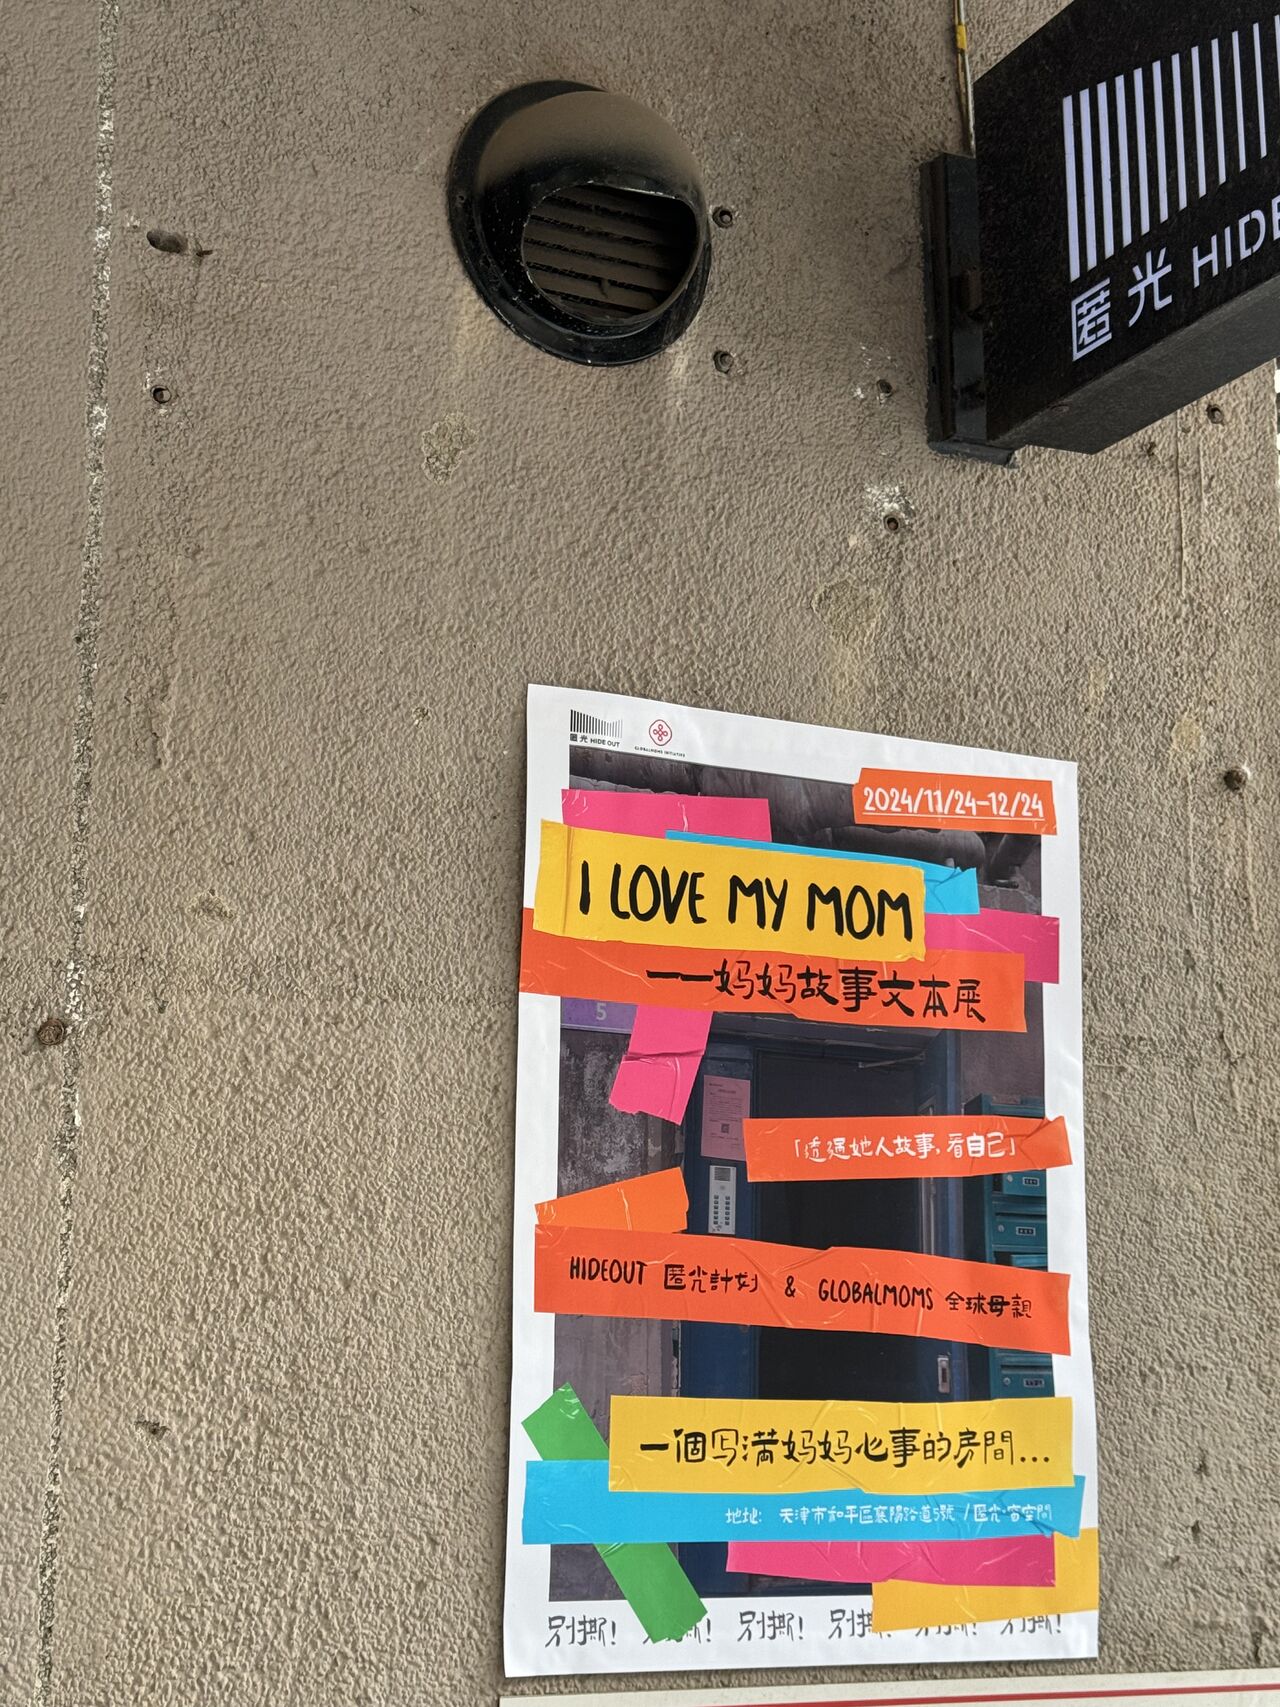 匿光 HIDE
匿光 HIDE OUT
GLOBALMOMS INITIATIVE
2024/11/24-12/24
I LOVE MY MOM
——妈妈故事文本展
5
「透過她人故事,看自己」
HIDEOUT 匿光計划 & GLOBALMOMS 全球母親
一個写满妈妈心事的房間...
地址: 天津市和平區襄陽路道5號 / 匿光·窗空間
别撕! 别撕! 别撕! 别撕! 别撕! 别撕!